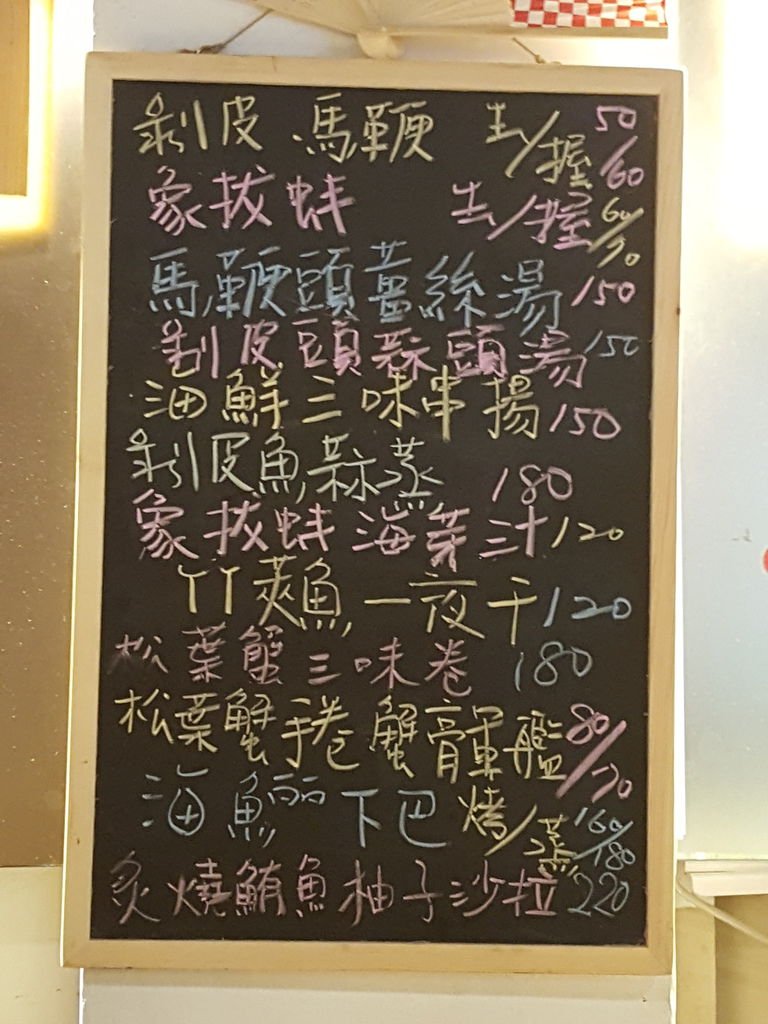 剝皮 馬鞭 生/握 50/60
象拔蚌 生/握 60/70
馬鞭頭薑絲湯 150
剝皮頭蒜頭湯 150
海鮮三味串揚 150
剝皮魚蒜蒸 180
象拔蚌海芽汁 120
竹莢魚一夜干 120
松葉蟹三味卷 180
松葉蟹手卷 蟹膏軍艦 80/70
海鱺下巴 烤/蒸 160/180
炙燒鮪魚柚子沙拉 220